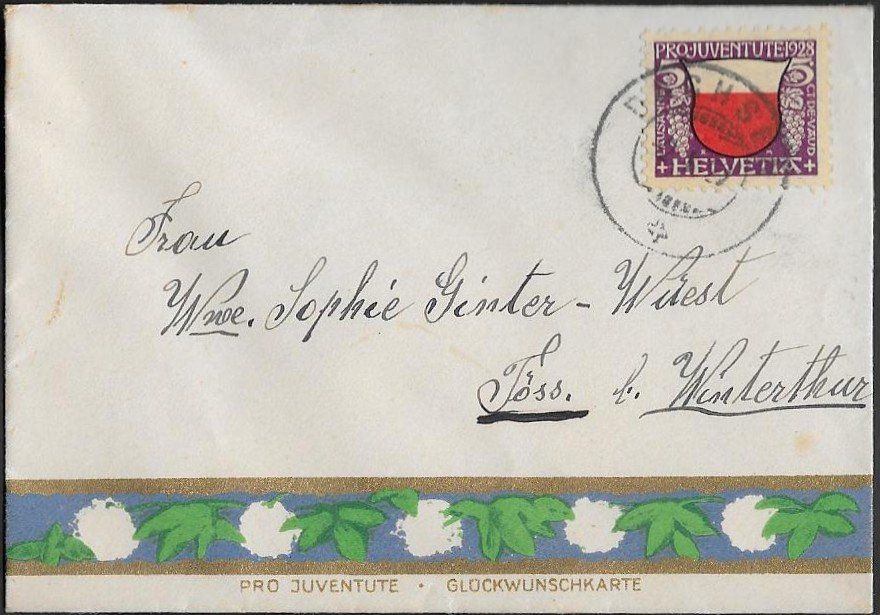 PRO JUVENTUTE 1928
5 5
LAUSANNE CT. DE VAUD
+ HELVETIA +
Frau
Wwe. Sophie Ginter-Wüest
Töss. b. Winterthur
PRO JUVENTUTE • GLÜCKWUNSCHKARTE